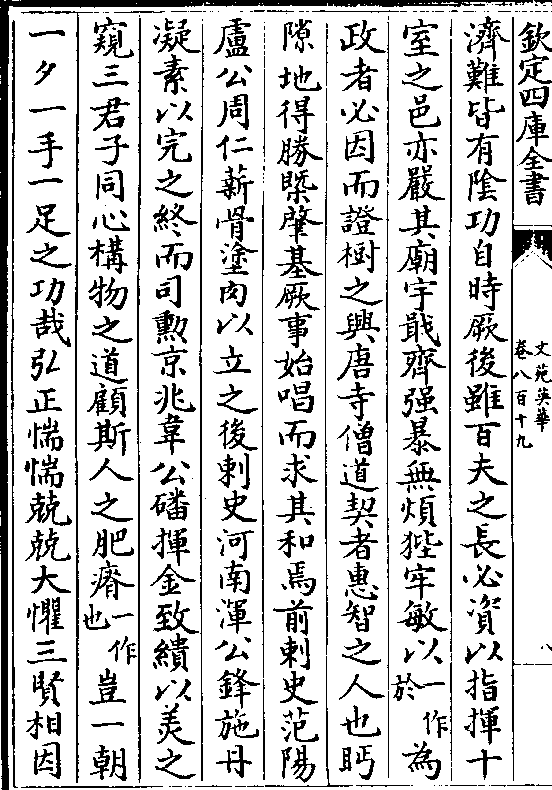 欽定四庫全書
文苑英華
卷八百十九
八
濟難皆有陰功自時厥後雖百夫之長必資以指揮十
室之邑亦嚴其廟宇戢齊强暴無煩狴牢敏以一作於為
政者必因而證樹之興唐寺僧道契者惠智之人也眄
隙地得勝槩肇基厥事始唱而求其和焉前刺史范陽
盧公周仁薪骨塗肉以立之後刺史河南渾公鋒施丹
凝素以完之終而司勲京兆韋公磻揮金致績以羙之
窺三君子同心構物之道顧斯人之肥瘠一作也豈一朝
一夕一手一足之功哉弘正惴惴兢兢大懼三賢相因